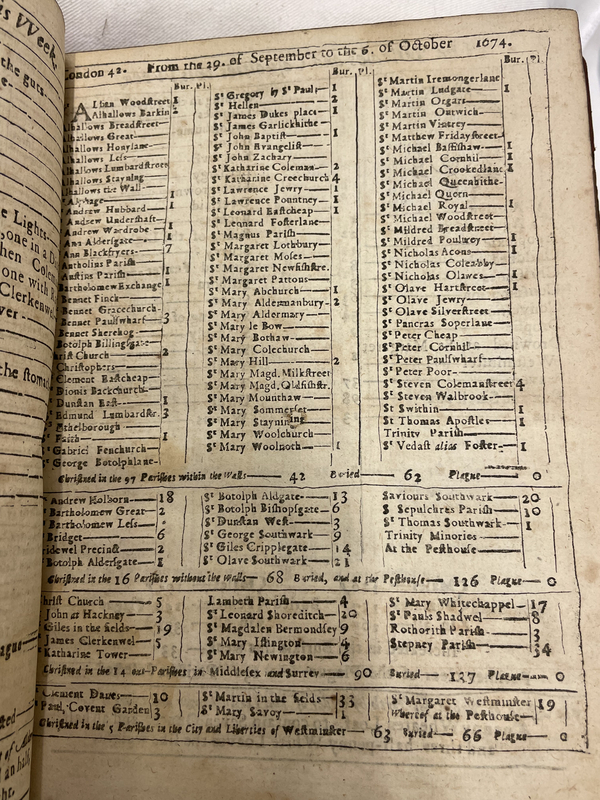 is Week
the guts.
London 42. From the 29. of September to the 6. of October 1674.
Bur. Pl.
Alban Woodstreet 1
Alhallows Barkin 2
lhallows Breadstreet
lhallows Great
lhallows Honylane
lhallows Less
lhallows Lumbardstreet
lhallows Stayning
lhallows the Wall
Alphage 1
Andrew Hubbard 1
Andrew Undershaft
Andrew Wardrobe 1
Ann Aldersgate 1
Ann Blackfryers 7
Antholins Parish
Austins Parish 1
Bartholomew Exchange 1
Bennet Finck
Bennet Gracechurch
Bennet Paulswharf 3
Bennet Sherehog
Botolph Billingsgate
hrist Church 2
Christophers
Clement Eastcheap
Dionis Backchurch
Dunstan East 1
Edmund Lumbardstr. 3
Ethelborough
Faith 1
Gabriel Fenchurch
George Botolphlane
Bur. Pl.
St Gregory by St Pauls 1
St Hellen 2
St James Dukes place 1
St James Garlickhithe
St John Baptist 1
St John Evangelist
St John Zachary
St Katharine Coleman 2
St Katharine Creechurch 4
St Lawrence Jewry 1
St Lawrence Pountney 1
St Leonard Eastcheap 1
St Leonard Fosterlane
St Magnus Parish
St Margaret Lothbury
St Margaret Moses
St Margaret Newfishstre.
St Margaret Pattons
St Mary Abchurch 1
St Mary Aldermanbury 2
St Mary Aldermary
St Mary le Bow
St Mary Bothaw
St Mary Colechurch
St Mary Hill 2
St Mary Magd. Milkstreet
St Mary Magd. Oldfishstr.
St Mary Mounthaw
St Mary Sommerset
St Mary Stayning
St Mary Woolchurch
St Mary Woolnoth 1
Bur. Pl.
St Martin Iremongerlane
St Martin Ludgate 1
St Martin Orgars
St Martin Outwich
St Martin Vintrey
St Matthew Fridaystreet
St Michael Bassishaw 1
St Michael Cornhil 1
St Michael Crookedlane
St Michael Queenhithe
St Michael Quorn
St Michael Royal 1
St Michael Woodstreet
St Mildred Breadstreet
St Mildred Poultrey 1
St Nicholas Acons 1
St Nicholas Coleabby
St Nicholas Olawes 1
St Olave Hartstreet 1
St Olave Jewry
St Olave Silverstreet
St Pancras Soperlane
St Peter Cheap
St Peter Cornhil
St Peter Paulswharf
St Peter Poor
St Steven Colemanstreet 4
St Steven Walbrook
St Swithin 1
St Thomas Apostles 1
Trinity Parish
St Vedast alias Foster 1
Christned in the 97 Parishes within the Walls 42 Buried 62 Plague 0
Andrew Holborn 18
Bartholomew Great 2
Bartholomew Less
Bridget 6
ridewel Precinct 2
Botolph Aldersgate 1
St Botolph Aldgate 13
St Botolph Bishopsgate 6
St Dunstan West 3
St George Southwark 9
St Giles Cripplegate 14
St Olave Southwark 21
Saviours Southwark 20
S Sepulchres Parish 10
St Thomas Southwark 1
Trinity Minories
At the Pesthouse
Christned in the 16 Parishes without the Walls 68 Buried, and at the Pesthouse 126 Plague 0
hrist Church 5
John at Hackney 3
Giles in the fields 19
James Clerkenwel 5
Katharine Tower
Lambeth Parish 4
St Leonard Shoreditch 20
St Magdalen Bermondsey 9
St Mary Islington 4
St Mary Newington 6
St Mary Whitechappel 17
St Pauls Shadwel 8
Rothorith Parish 3
Stepney Parish 34
Christned in the 14 out-Parishes in Middlesex and Surrey 90 Buried 137 Plague 0
Clement Danes 10
Paul Covent Garden 3
St Martin in the fields 33
St Mary Savoy 1
St Margaret Westminster 19
Whereof at the Pesthouse
Christned in the 5 Parishes in the City and Liberties of Westminster 63 Buried 66 Plague 0